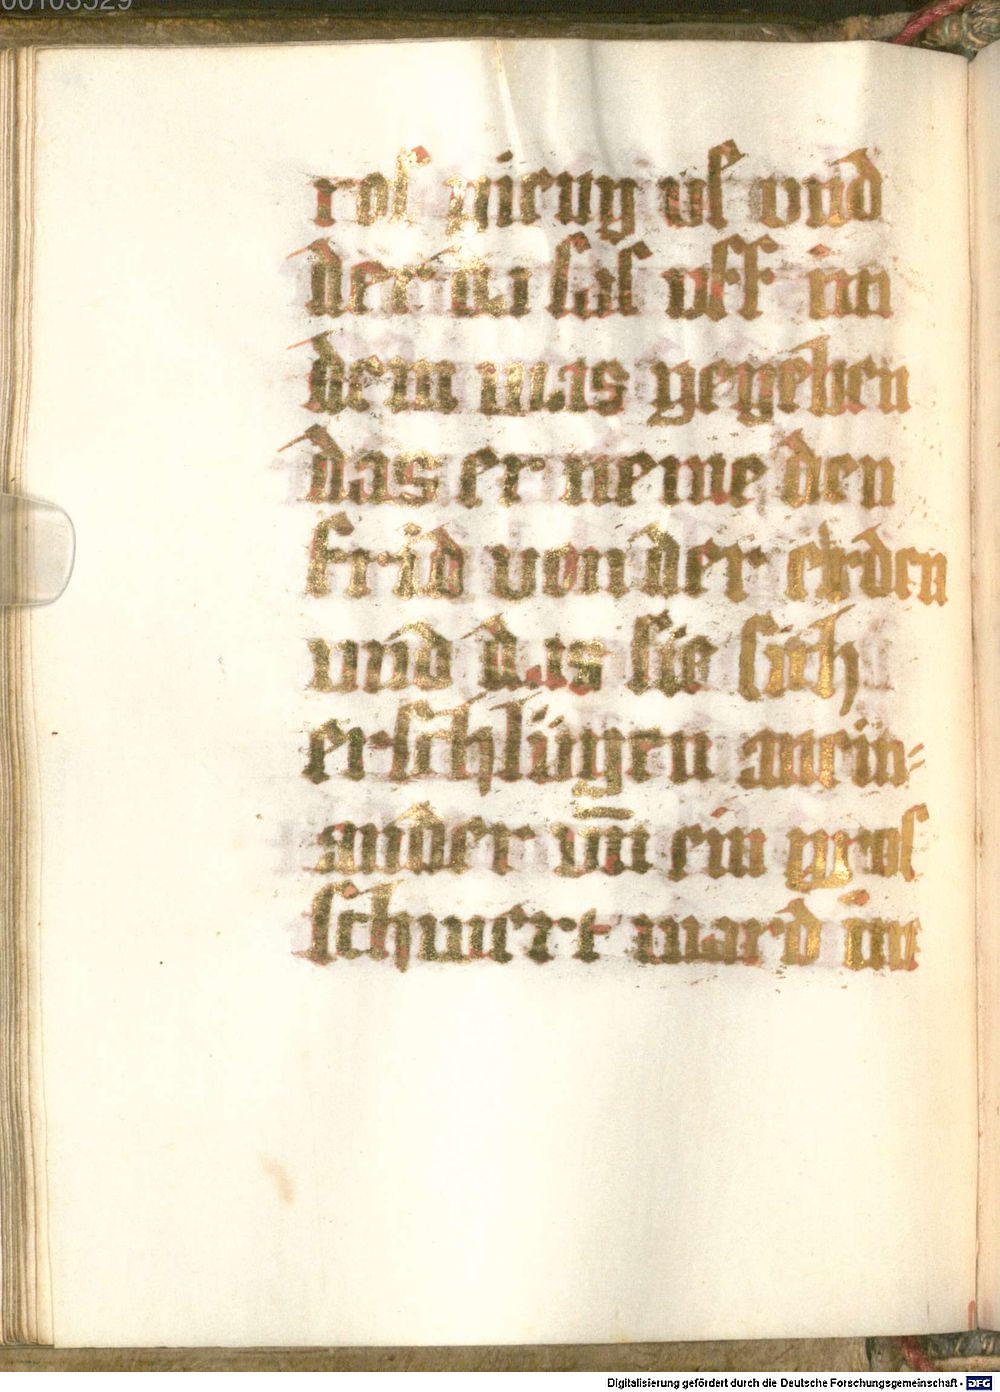 00103529
ros gieng us vnd
der da sas uff im
dem was gegeben
das er neme den
frid von der erden
vnd das sie sich
erschlügen anein⸗
ander vn̄ ein gros
schwert ward im
Digitalisierung gefördert durch die Deutsche Forschungsgemeinschaft - DFG